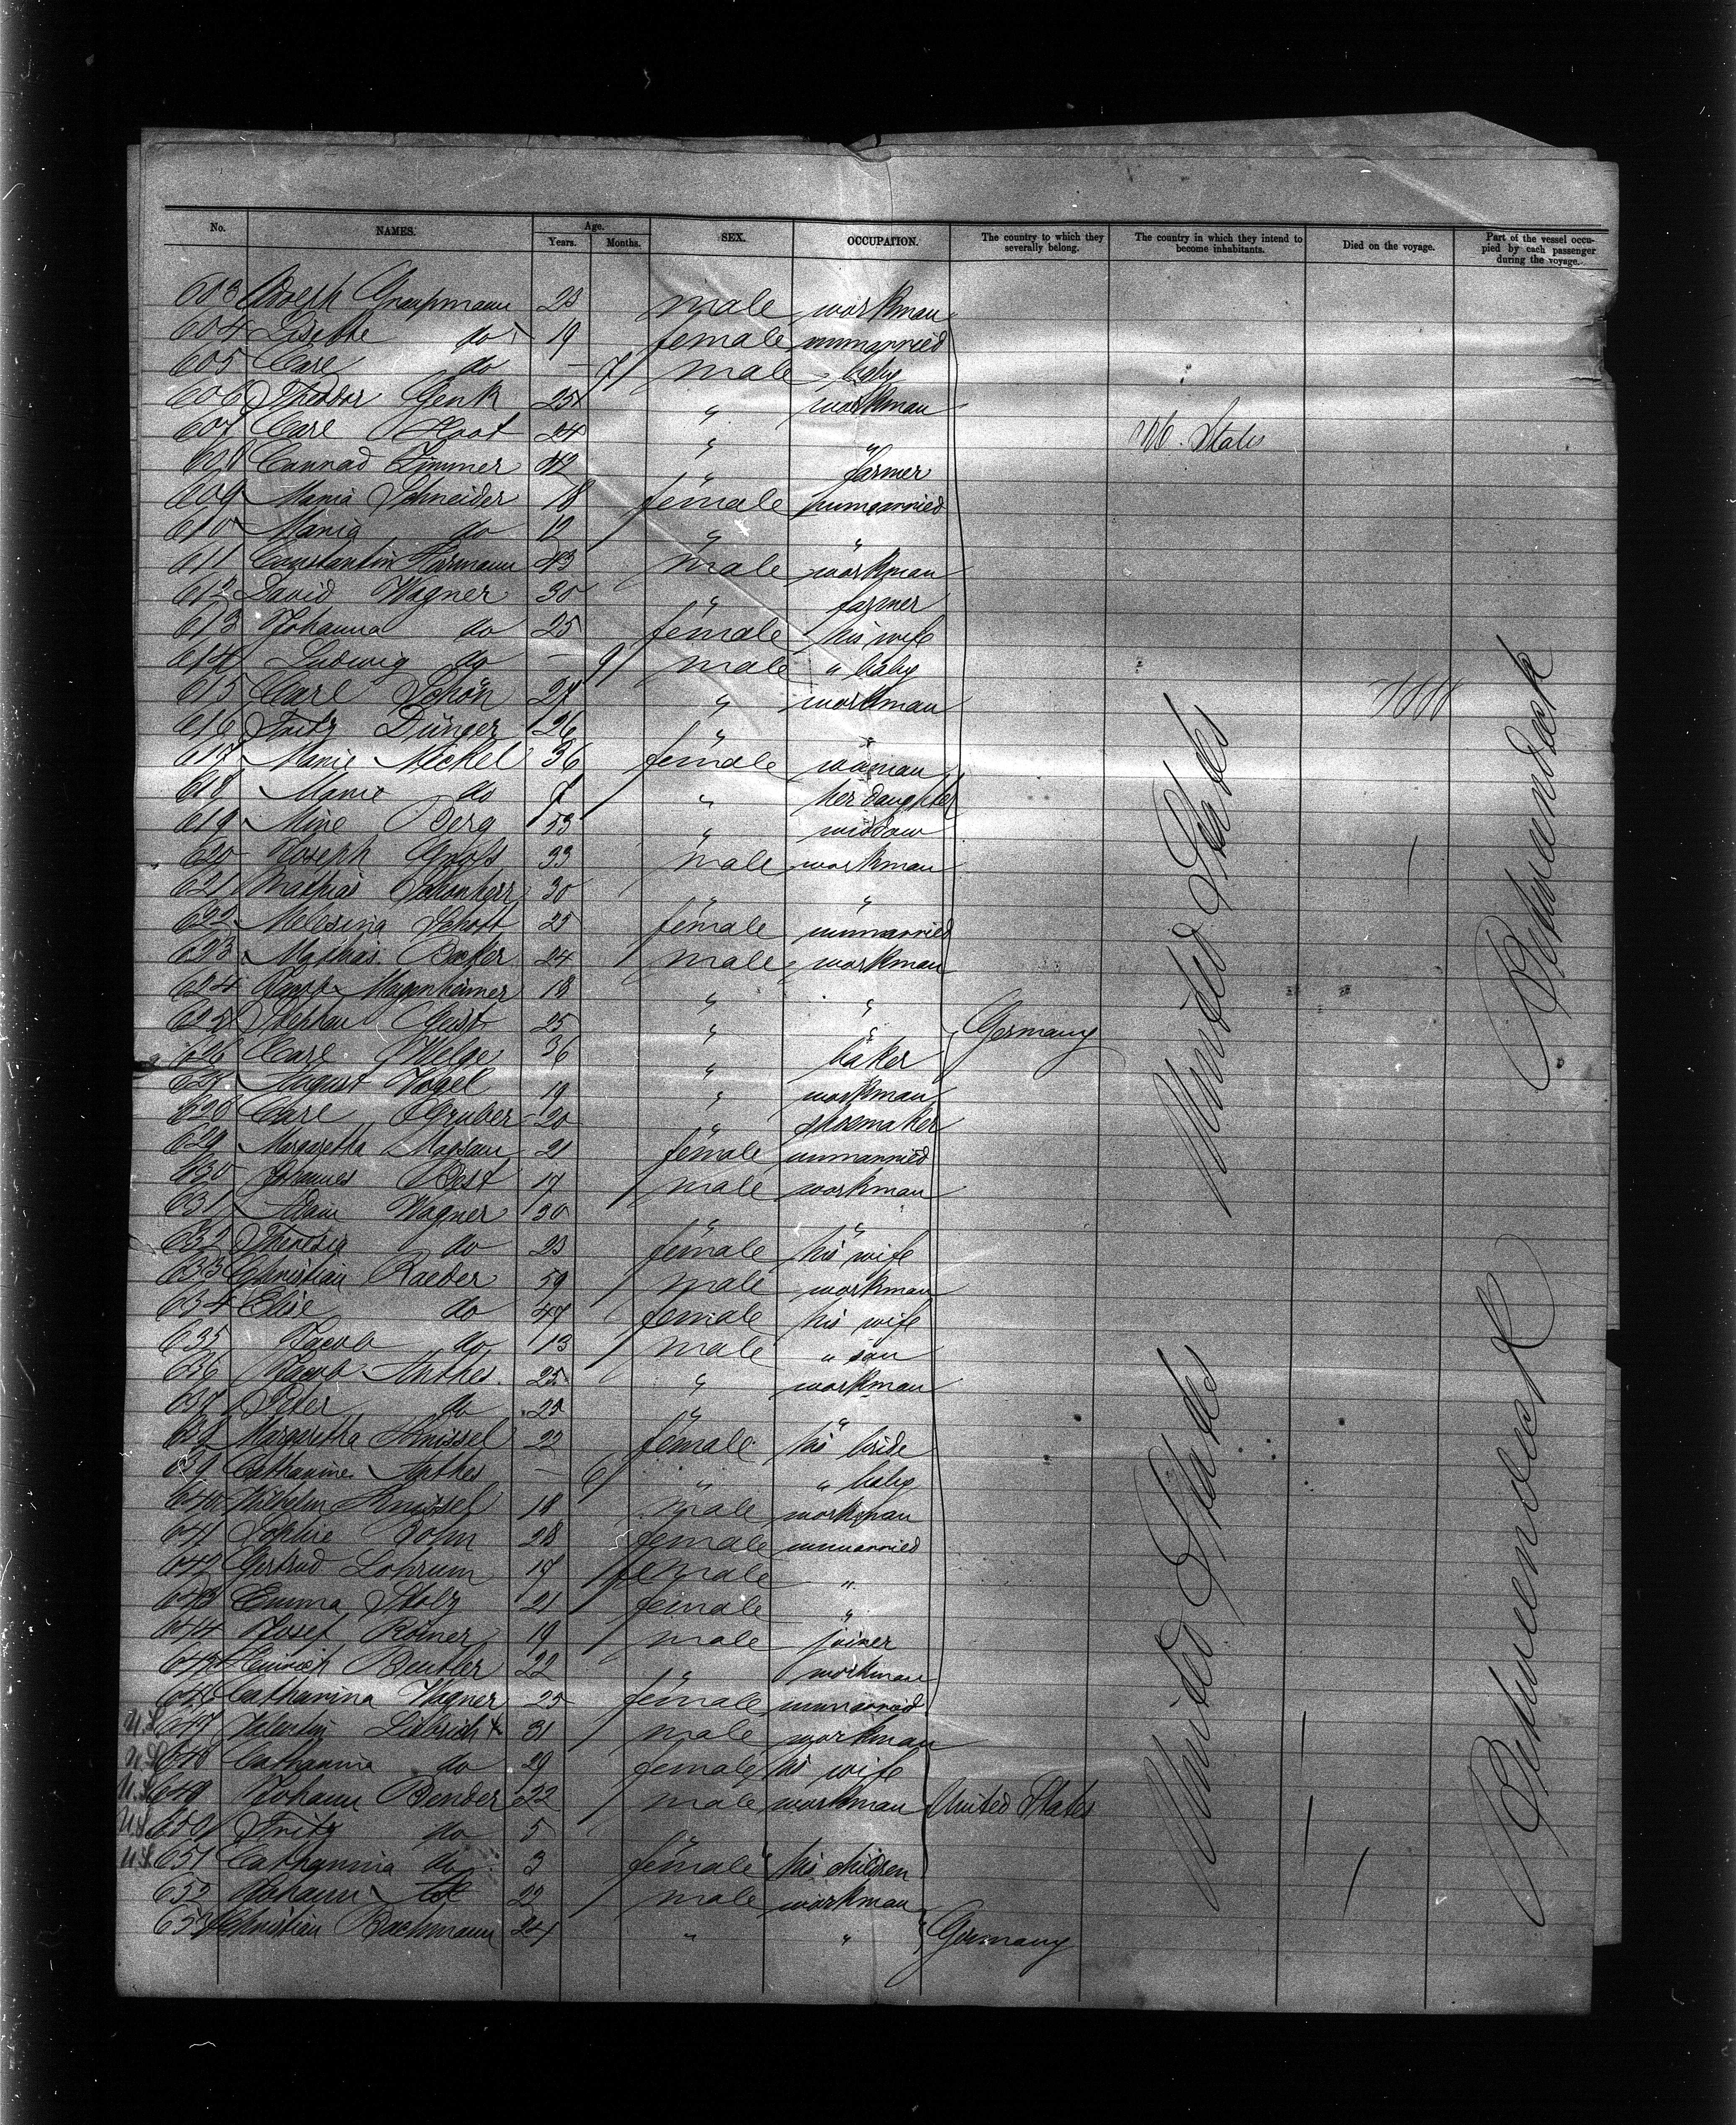 No. NAMES. Age. Years. Months. SEX. OCCUPATION. The country to which they severally belong. The country in which they intend to become inhabitants. Died on the voyage. Part of the vessel occupied by each passenger during the voyage.
603 Adolph Graupmann 23 male workman
604 Lisette do 19 female unmarried
605 Carl do - 7 male baby
606 Theodor Genk 25 " workman
607 Carl 24 " " States
608 Conrad Zimmer 42 " farmer
609 Maria Schneider 18 female unmarried
610 Maria do 12 " "
611 Constantin Hermann 43 male workman
612 David Wagner 30 " farmer
613 Johanna do 25 female his wife
614 Ludwig do - 9 male " baby
615 Carl Schön 27 " workman
616 Fritz Dünger 26 " "
617 Marie Meckel 36 female woman
618 Marie do 7 " her daughter
619 Mine Berg 53 " widow
620 Joseph 33 male workman
621 Mathias Schönherr 30 " "
622 Schott 25 female unmarried
623 Mathias 24 male workman
624 Magenheimer 18 " "
625 Stephan Geist 25 " " Germany
626 Carl 36 " baker
627 August Vogel 19 " workman
628 Carl Gruber 20 " shoemaker
629 Margaretha 21 female unmarried
630 Johannes Best 17 male workman
631 Adam Wagner 30 " "
632 Theresia do 23 female his wife
633 Christian Raeder 59 male workman
634 Elise do 47 female his wife
635 Jacob do 13 male " son
636 Jacob Anthes 25 " workman
637 Peter do 25 " "
638 Margaretha Knissel 22 female his bride
639 Catharine Anthes - 6 " " baby
640 Wilhelm Knissel 18 male workman
641 Sophie Bohn 28 female unmarried
642 Gertrud Lohrum 17 female "
643 Emma Stolz 21 female "
644 Josef Römer 19 male joiner
645 Heinrich Beutler 22 " workman
646 Catharina Wagner 25 female unmarried
U.S. 647 Valentin 31 male workman
U.S. 648 Catharina do 29 female his wife
U.S. 649 Johann Bender 32 male workman United States
U.S. 650 Fritz do 5
U.S. 651 Catharina do 3 female his children
652 Johann 22 male workman
653 Christian Bachmann 24 " " Germany
United States
United States
Betweendeck
Betweendeck